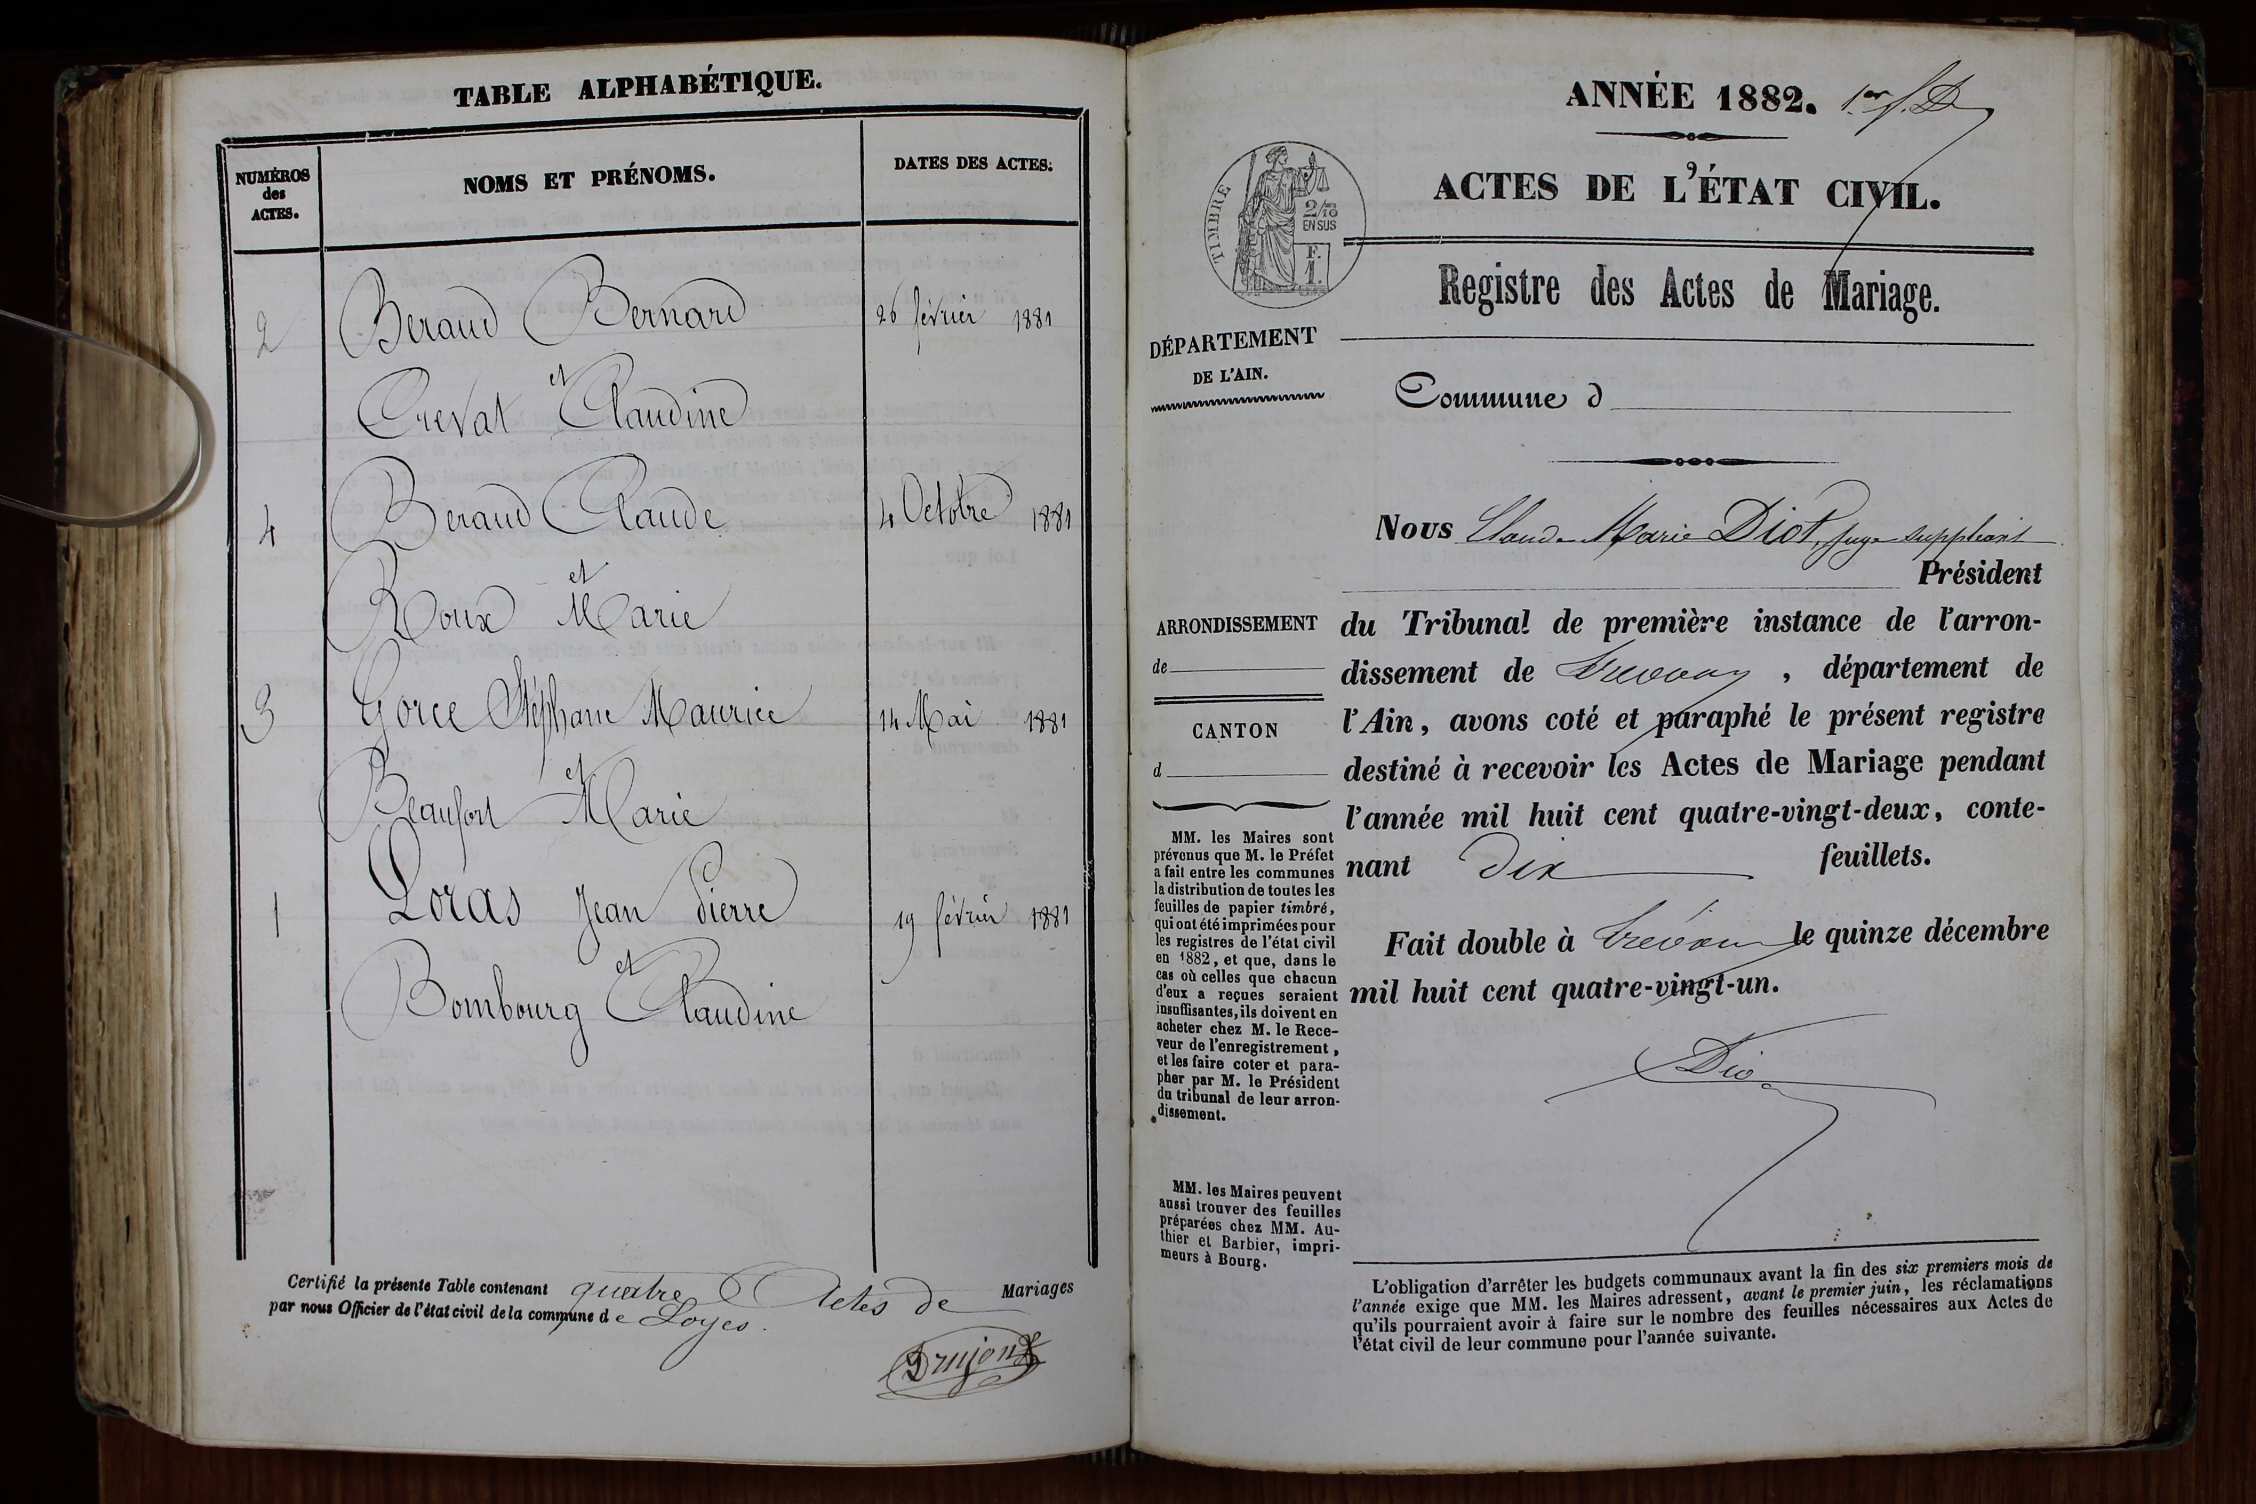 TABLE ALPHABÉTIQUE.
NUMÉROS
des
ACTES.
NOMS ET PRÉNOMS.
DATES DES ACTES.
2 Beraud Bernard 26 février 1881
et
Crevat Claudine
4 Beraud Claude 4 Octobre 1881
et
Roux Marie
3 Gorce Stéphane Maurice 14 Mai 1881
et
Beaufort Marie
1 Loras Jean Pierre 19 février 1881
et
Bombourg Claudine
Certifié la présente Table contenant quatre Actes de Mariages
par nous Officier de l'état civil de la commune de Loyes.
Drujon
ANNÉE 1882. 1er f. D
ACTES DE L'ÉTAT CIVIL.
TIMBRE
2/10
EN SUS
F.
1.
Registre des Actes de Mariage.
DÉPARTEMENT
DE L'AIN.
Commune d
Nous Claude Marie Diot, juge suppléant
Président
ARRONDISSEMENT
de
CANTON
d
du Tribunal de première instance de l'arron-
dissement de Trévoux, département de
l'Ain, avons coté et paraphé le présent registre
destiné à recevoir les Actes de Mariage pendant
l'année mil huit cent quatre-vingt-deux, conte-
nant Dix feuillets.
Fait double à Trévoux le quinze décembre
mil huit cent quatre-vingt-un.
Diot
MM. les Maires sont
prévenus que M. le Préfet
a fait entre les communes
la distribution de toutes les
feuilles de papier timbré,
qui ont été imprimées pour
les registres de l'état civil
en 1882, et que, dans le
cas où celles que chacun
d'eux a reçues seraient
insuffisantes, ils doivent en
acheter chez M. le Rece-
veur de l'enregistrement,
et les faire coter et para-
pher par M. le Président
du tribunal de leur arron-
dissement.
MM. les Maires peuvent
aussi trouver des feuilles
préparées chez MM. Au-
thier et Barbier, impri-
meurs à Bourg.
L'obligation d'arrêter les budgets communaux avant la fin des six premiers mois de
l'année exige que MM. les Maires adressent, avant le premier juin, les réclamations
qu'ils pourraient avoir à faire sur le nombre des feuilles nécessaires aux Actes de
l'état civil de leur commune pour l'année suivante.